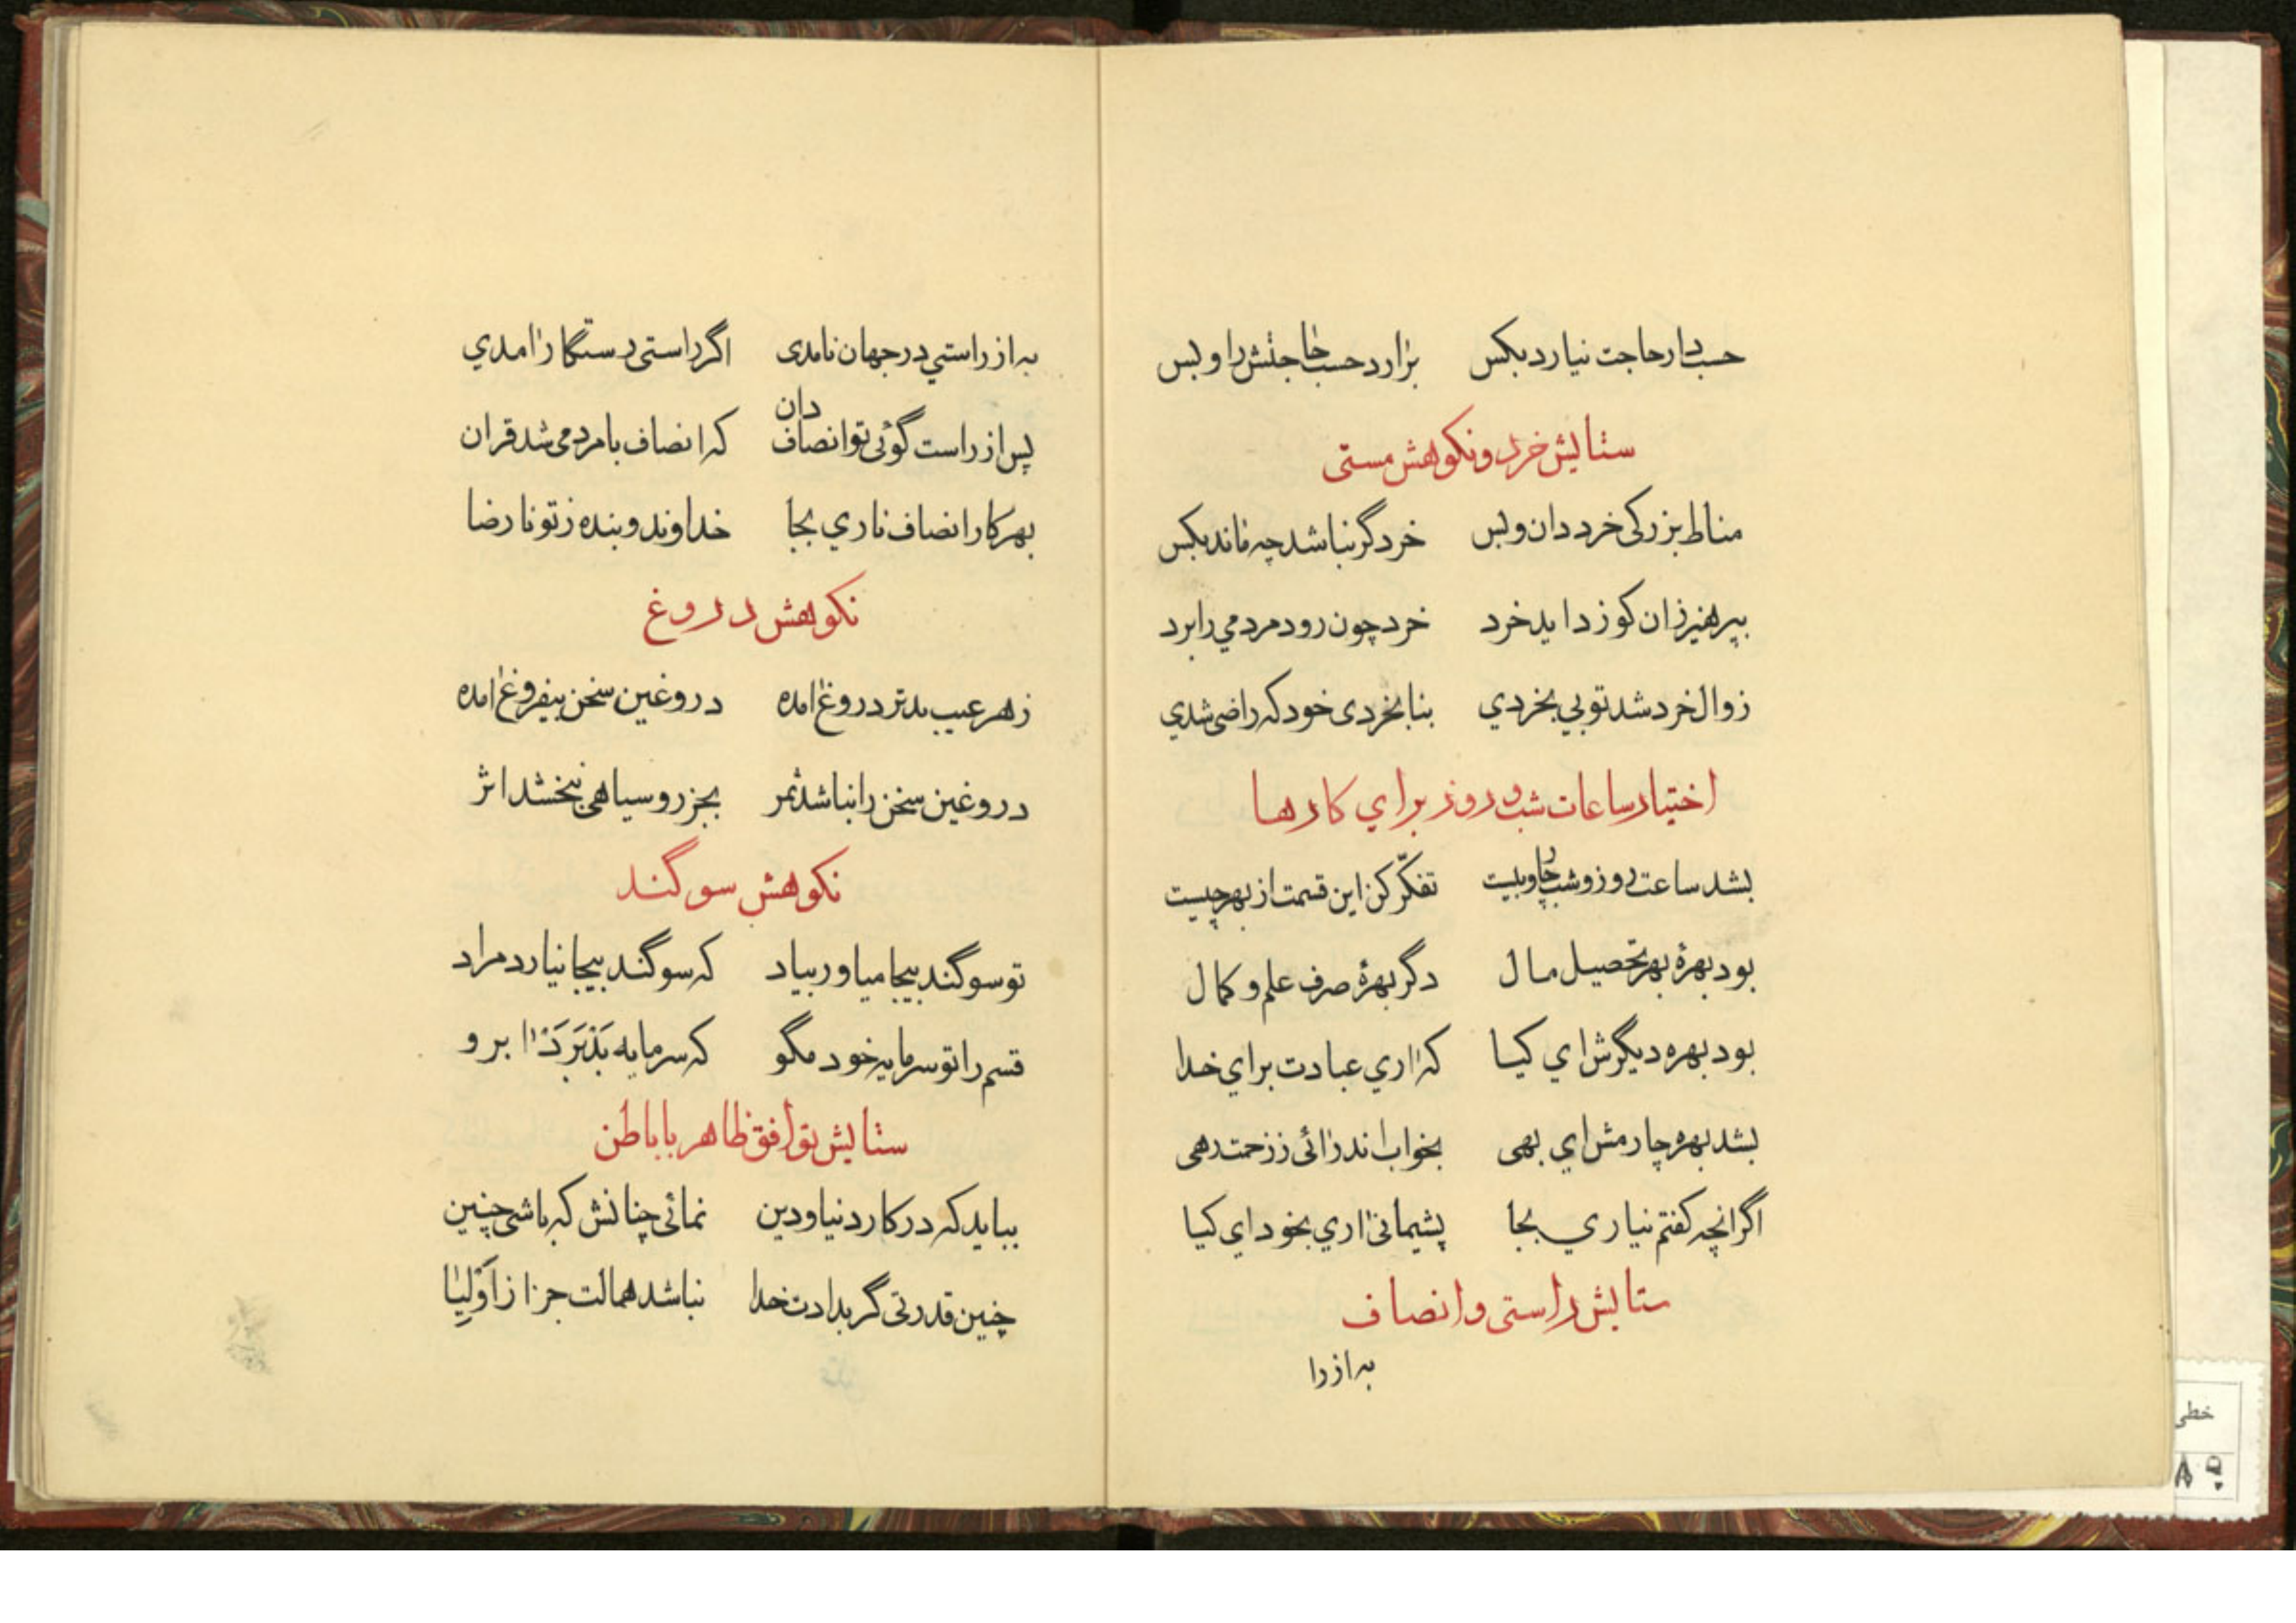 حسب دار حاجت نیارد بکس بزارد حسب حاجتش را و بس
ستایش خرد و نکوهش مستی
مناط بزرکی خرد دان و بس خرد گر نباشد چه ماند بکس
بپرهیز زان کو زداید خرد خرد چون رود مردمي را برد
زوال خرد شد تو بي بخردي بنابخردی خود که راضی شدي
اختیار ساعات شب و روز براي کارها
بشد ساعت روز و شب چار و بیست تفکّر کن این قسمت از بهر چیست
بود بهرهٔ بهر تحصیل مال دگر بهرهٔ صرف علم و کمال
بود بهره دیگرش اي کیا که اري عبادت براي خدا
بشد بهره چارمش اي بهی بخواب اندر ائی ز زحمت رهی
اگر انچه کفتم نیاري بجا پشیمانی اري بخود اي کیا
ستایش راستی و انصاف
به از را
به از راستي در جهان نامدی اگر راستی رستگار امدي
پس از راست گوئی تو انصاف دان که انصاف با مردمی شد قران
بهر کار انصاف ناري بجا خداوند و بنده ز تو نارضا
نکوهش دروغ
ز هر عیب بدتر دروغ امده دروغین سخن بیفروغ امده
دروغین سخن را نباشد ثمر بجز روسیاهی نبخشد اثر
نکوهش سوگند
تو سوگند بیجا میاور بیاد که سوگند بیجا نیارد مراد
قسم را تو سرمایه خود مگو که سرمایه بَذبَرَد ابرو
ستایش توافق ظاهر با باطن
بباید که در کار دنیا و دین نمائی چنانش که باشی چنین
چنین قدرتی گر بدادت خدا نباشد همالت جز از اَوْلِیٰا
خطی